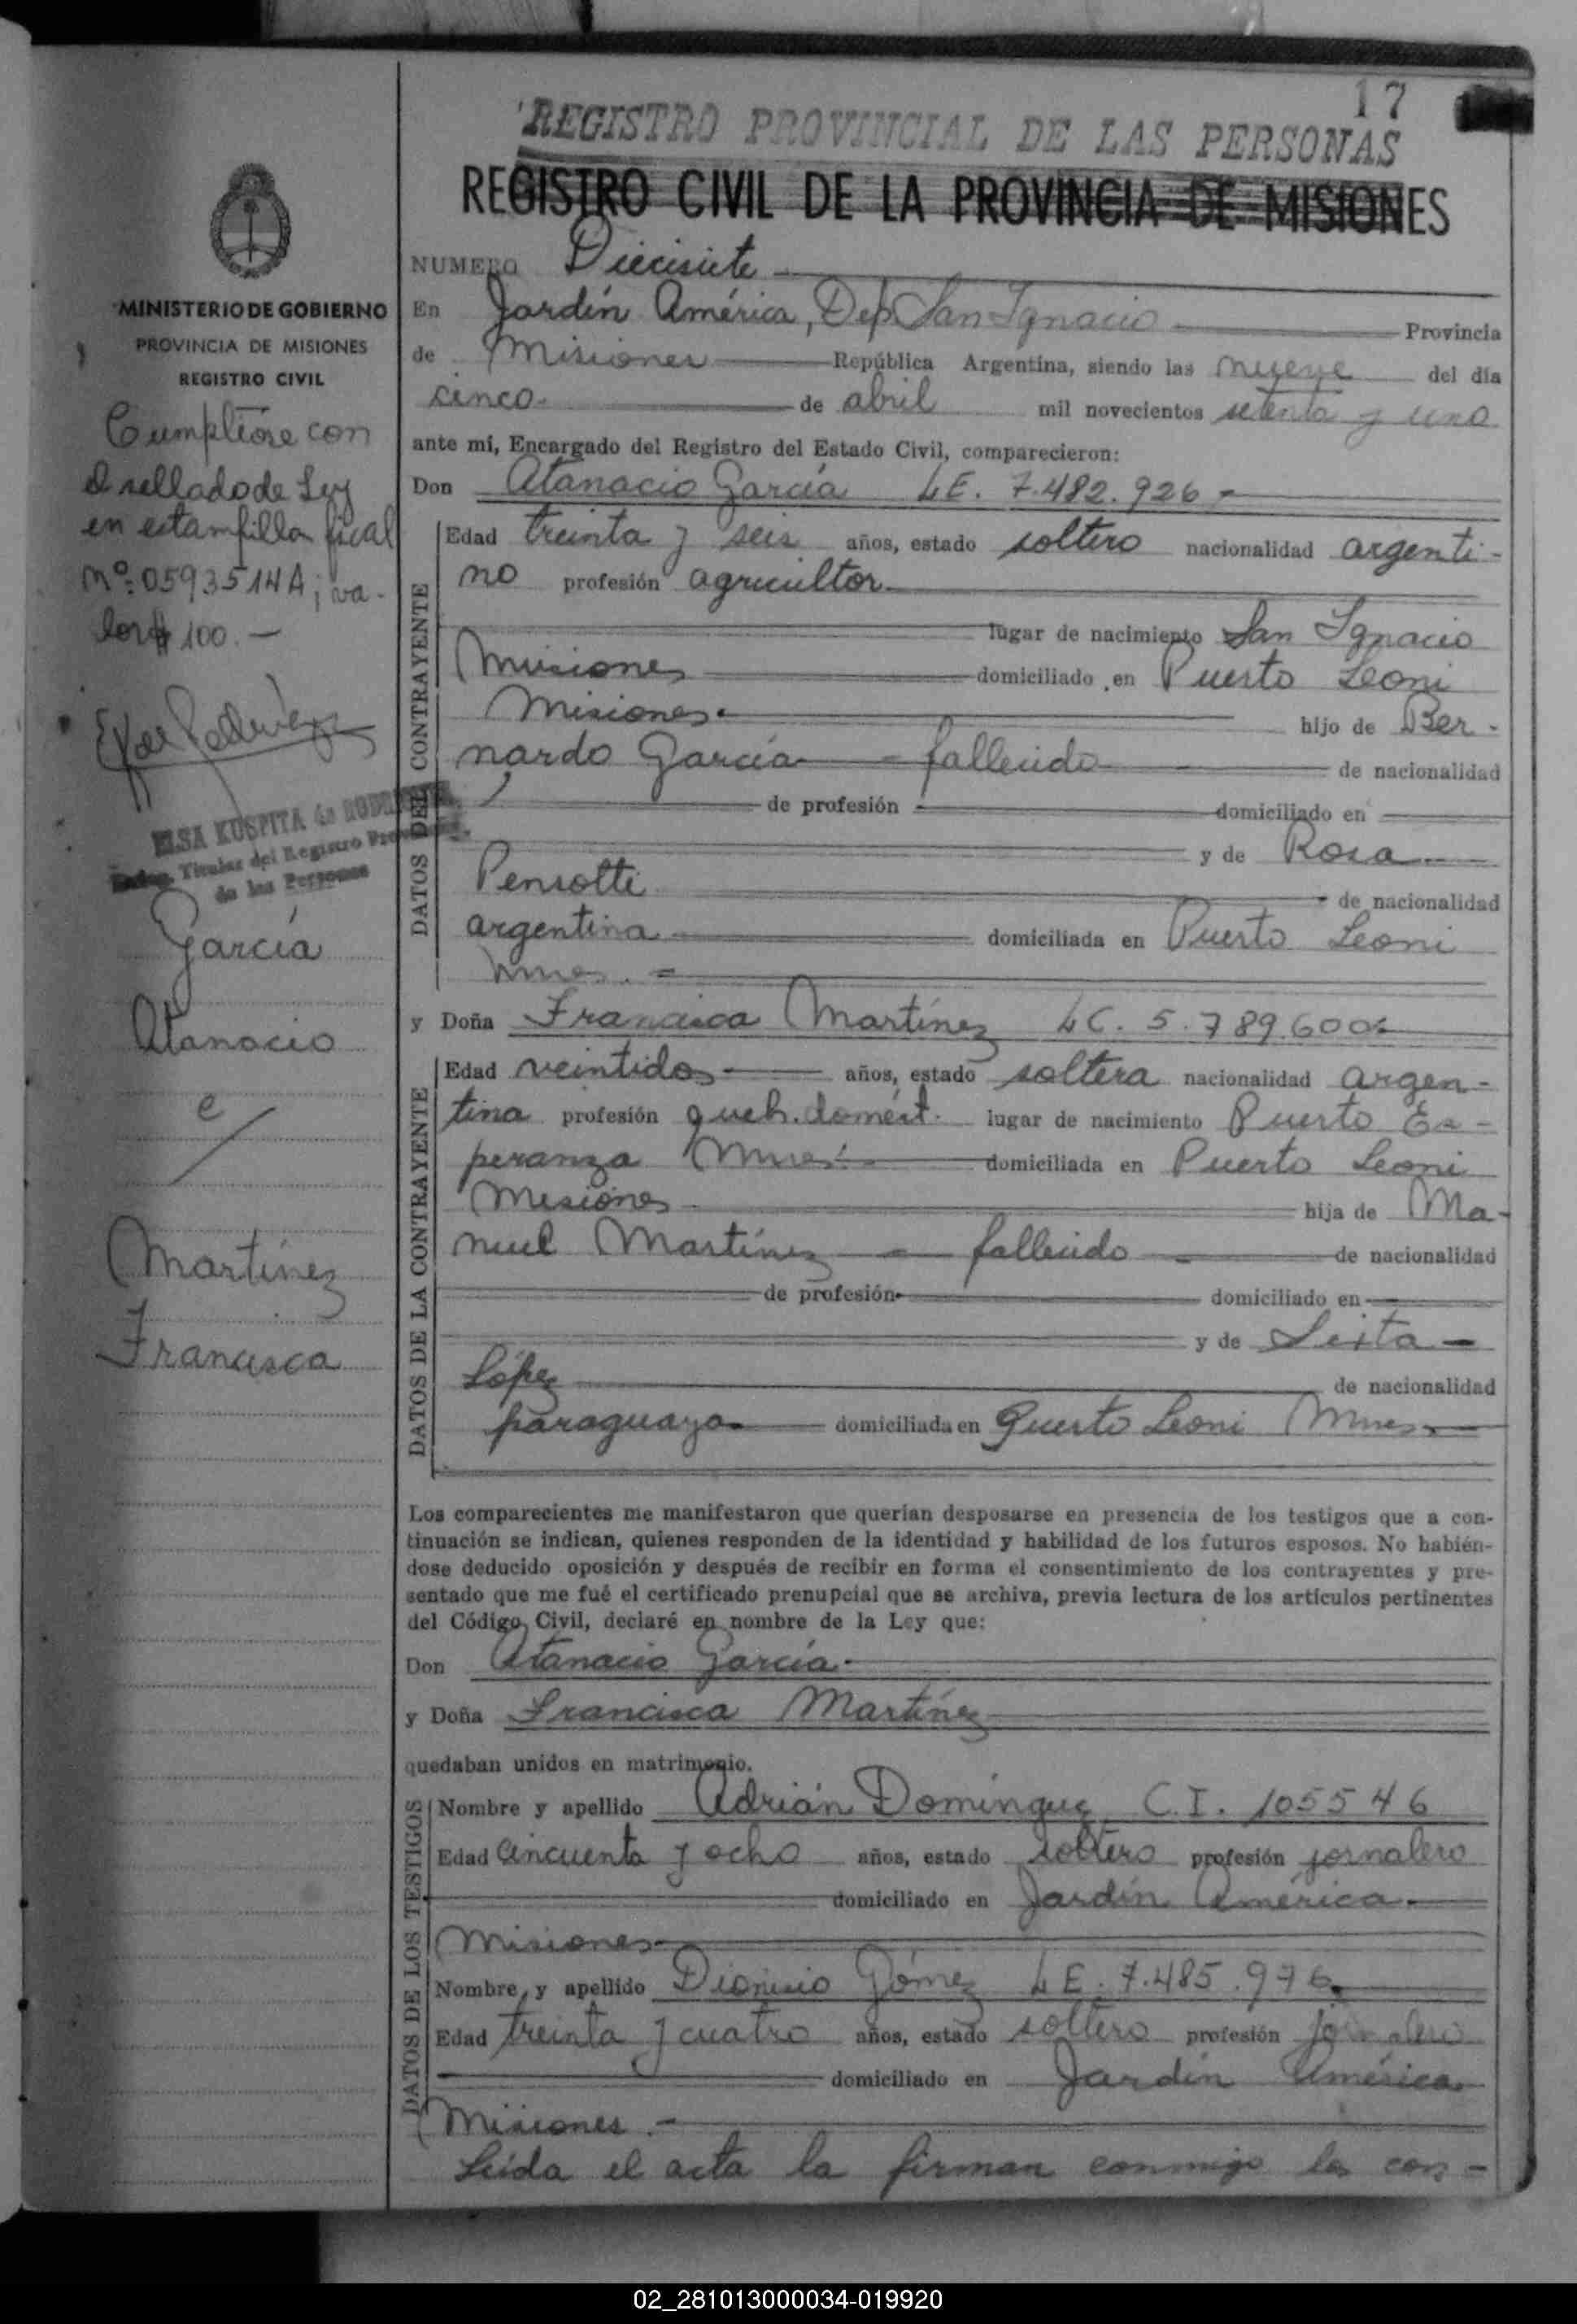 17
REGISTRO PROVINCIAL DE LAS PERSONAS
REGISTRO CIVIL DE LA PROVINCIA DE MISIONES
MINISTERIO DE GOBIERNO
PROVINCIA DE MISIONES
REGISTRO CIVIL
Cumplióse con
el sellado de Ley
en estampilla fiscal
nº: 0593514A; va-
lor $ 100.-
ELSA KUSPITA de
Titular del Registro
de las Personas
García
Atanacio
e
Martínez
Francisca
NUMERO Diecisiete
En Jardín América, Dep. San Ignacio Provincia
de Misiones República Argentina, siendo las nueve del día
cinco de abril mil novecientos setenta y uno
ante mí, Encargado del Registro del Estado Civil, comparecieron:
Don Atanacio García LE. 7.482.926.-
DATOS DEL CONTRAYENTE
Edad treinta y seis años, estado soltero nacionalidad argenti-
no profesión agricultor
lugar de nacimiento San Ignacio
Misiones domiciliado en Puerto Leoni
Misiones.- hijo de Ber-
nardo García - fallecido de nacionalidad
de profesión domiciliado en
y de Rosa
Pensotti de nacionalidad
argentina domiciliada en Puerto Leoni
Mnes. =
y Doña Francisca Martínez LC. 5.789.600.-
DATOS DE LA CONTRAYENTE
Edad veintidos años, estado soltera nacionalidad argen-
tina profesión queh. domést. lugar de nacimiento Puerto Es-
peranza Mnes. domiciliada en Puerto Leoni
Misiones hija de Ma-
nuel Martínez - fallecido - de nacionalidad
de profesión domiciliado en
y de Sixta -
López de nacionalidad
paraguaya domiciliada en Puerto Leoni Mnes.
Los comparecientes me manifestaron que querían desposarse en presencia de los testigos que a con-
tinuación se indican, quienes responden de la identidad y habilidad de los futuros esposos. No habién-
dose deducido oposición y después de recibir en forma el consentimiento de los contrayentes y pre-
sentado que me fué el certificado prenupcial que se archiva, previa lectura de los artículos pertinentes
del Código Civil, declaré en nombre de la Ley que:
Don Atanacio García.-
y Doña Francisca Martínez
quedaban unidos en matrimonio.
DATOS DE LOS TESTIGOS
Nombre y apellido Adrián Domínguez C.I. 105546
Edad cincuenta y ocho años, estado soltero profesión jornalero
domiciliado en Jardín América.-
Misiones
Nombre y apellido Dionisio Gómez LE. 7.485.976.
Edad treinta y cuatro años, estado soltero profesión jornalero
domiciliado en Jardín América
Misiones.-
Leída el acta la firman conmigo los con-
02_281013000034-019920